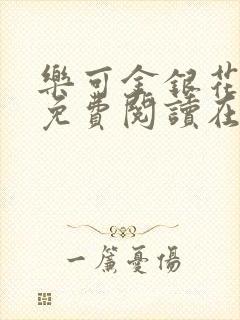 樂可金銀花
免費閱讀在
一簾憂傷